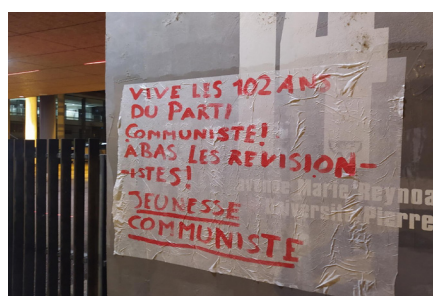 14
VIVE LES 102 ANS
DU PARTI
COMMUNISTE!
ABAS LES REVISION-
-ISTES!
JEUNESSE
COMMUNISTE
avenue Marie Reynoa
Université Pierre